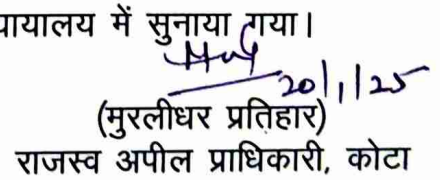 यायालय में सुनाया गया।
20/1/25
(मुरलीधर प्रतिहार)
राजस्व अपील प्राधिकारी, कोटा